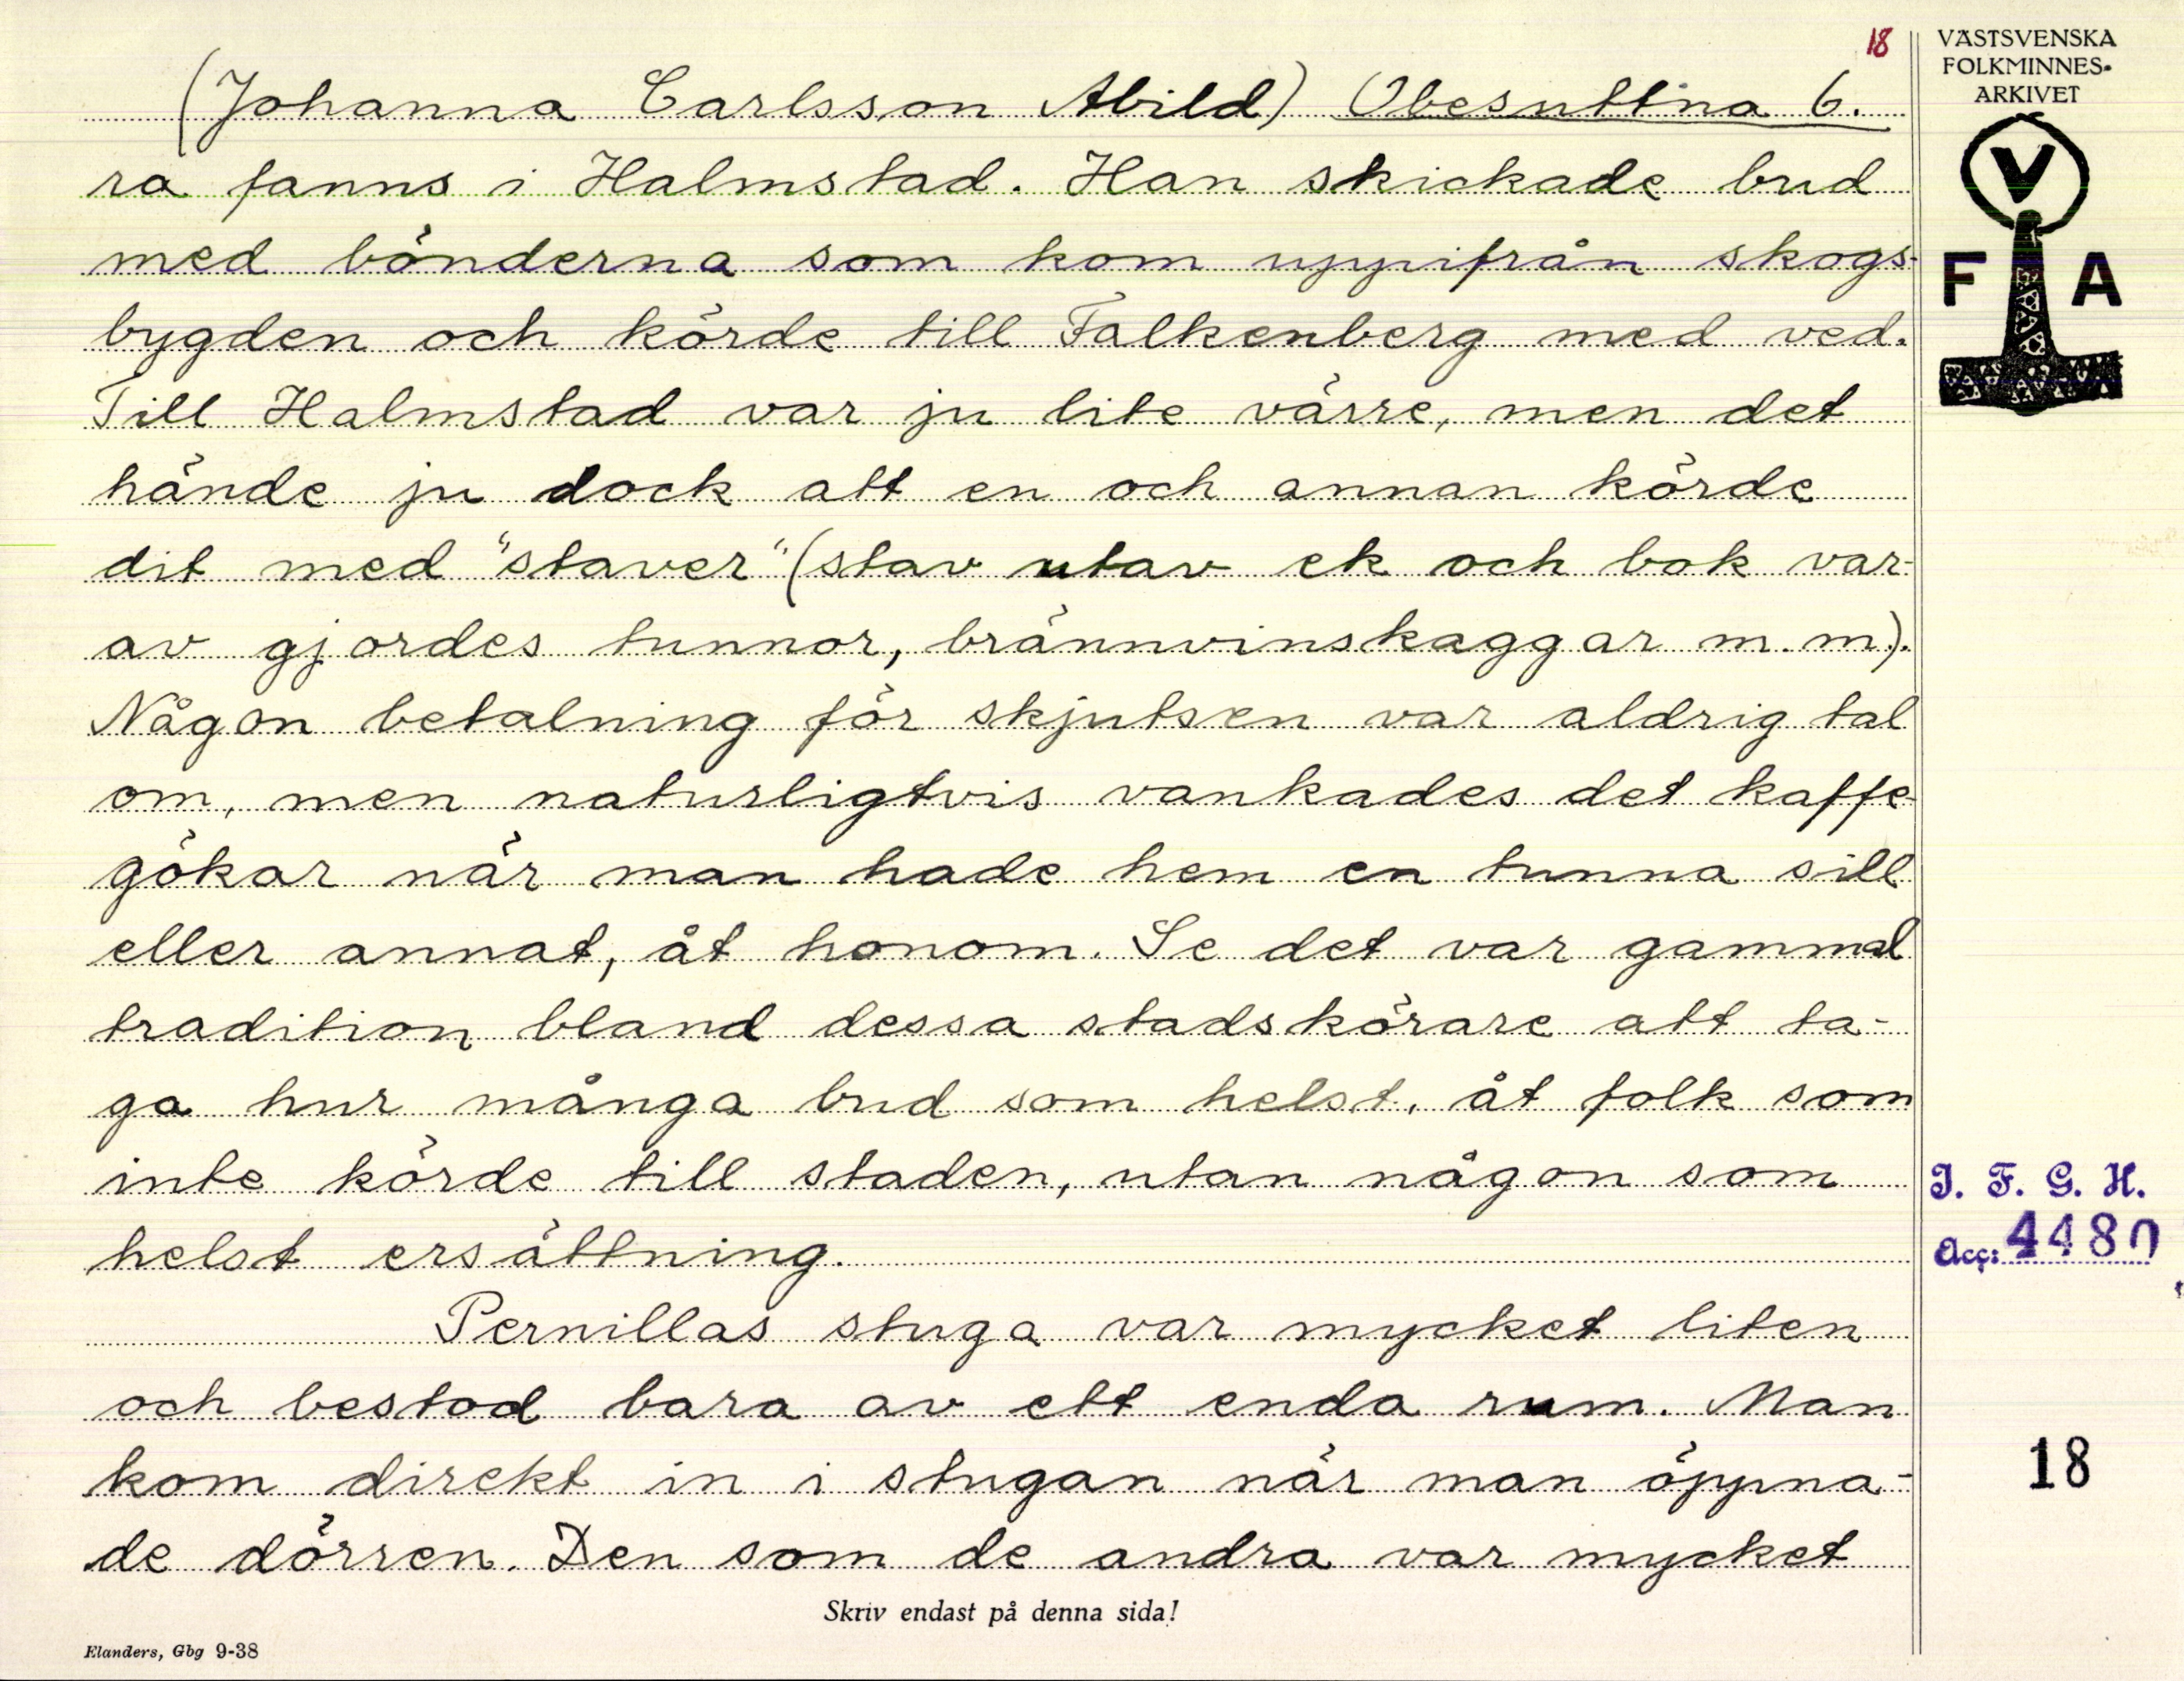 18
(Johanna Carlsson Abild) Obesuttna 6.
ra fanns i Halmstad. Han skickade bud
med bönderna som kom uppifrån skogs-
bygden och körde till Falkenberg med ved.
Till Halmstad var ju lite värre, men det
hände ju dock att en och annan körde
dit med "staver" (stav utav ek och bok var-
av gjordes tunnor, brännvinskaggar m.m).
Någon betalning för skjutsen var aldrig tal
om, men naturligtvis vankades det kaffe-
gökar när man hade hem en tunna sill
eller annat, åt honom. Se det var gammal
tradition bland dessa stadskörare att ta-
ga hur många bud som helst, åt folk som
inte körde till staden, utan någon som
helst ersättning.
Pernillas stuga var mycket liten
och bestod bara av ett enda rum. Man
kom direkt in i stugan när man öppna-
de dörren. Den som de andra var mycket
Skriv endast på denna sida!
Elanders, Gbg 9-38
VÄSTSVENSKA
FOLKMINNES-
ARKIVET
V
F A
I. F. G. H.
Acc: 4480
18